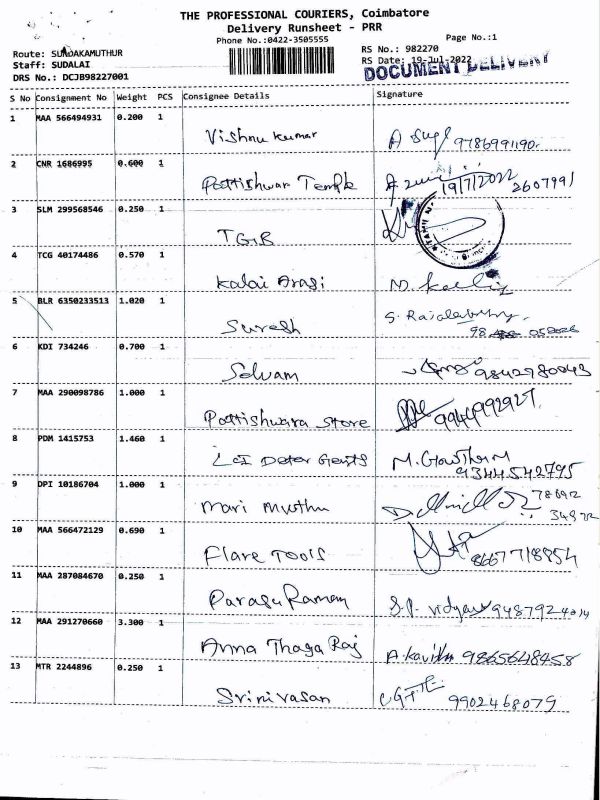 THE PROFESSIONAL COURIERS, Coimbatore
Delivery Runsheet - PRR
Phone No.:0422-3505555
Page No.:1
Route: SUNDAKAMUTHUR
RS No.: 982270
Staff: SUDALAI
RS Date: 19-Jul-2022
DRS No.: DCJB98227001
DOCUMENT DELIVERY
S No Consignment No Weight PCS Consignee Details Signature
1 MAA 566494931 0.200 1
Vishnu kumar 9786991190
2 CNR 1686995 0.600 1
Pattishwar Temple 19/7/2022 2607991
3 SLM 299568546 0.250 1
TGB
4 TCG 40174486 0.570 1
Kalai Arasi
5 BLR 6350233513 1.020 1
Suresh
98
6 KDI 734246 0.700 1
Selvam 9842980043
7 MAA 290098786 1.000 1
Pattishwara Store 9944992927
8 PDM 1415753 1.460 1
M. Gowtham
9344542795
9 DPI 10186704 1.000 1
Mari Muthu
10 MAA 566472129 0.690 1
Flare Tools 8667718854
11 MAA 287084670 0.250 1
Parasu Raman
12 MAA 291270660 3.300 1
Anna Thaga Raj A. Kavitha 9865648458
13 MTR 2244896 0.250 1
Srinivasan 9902468079